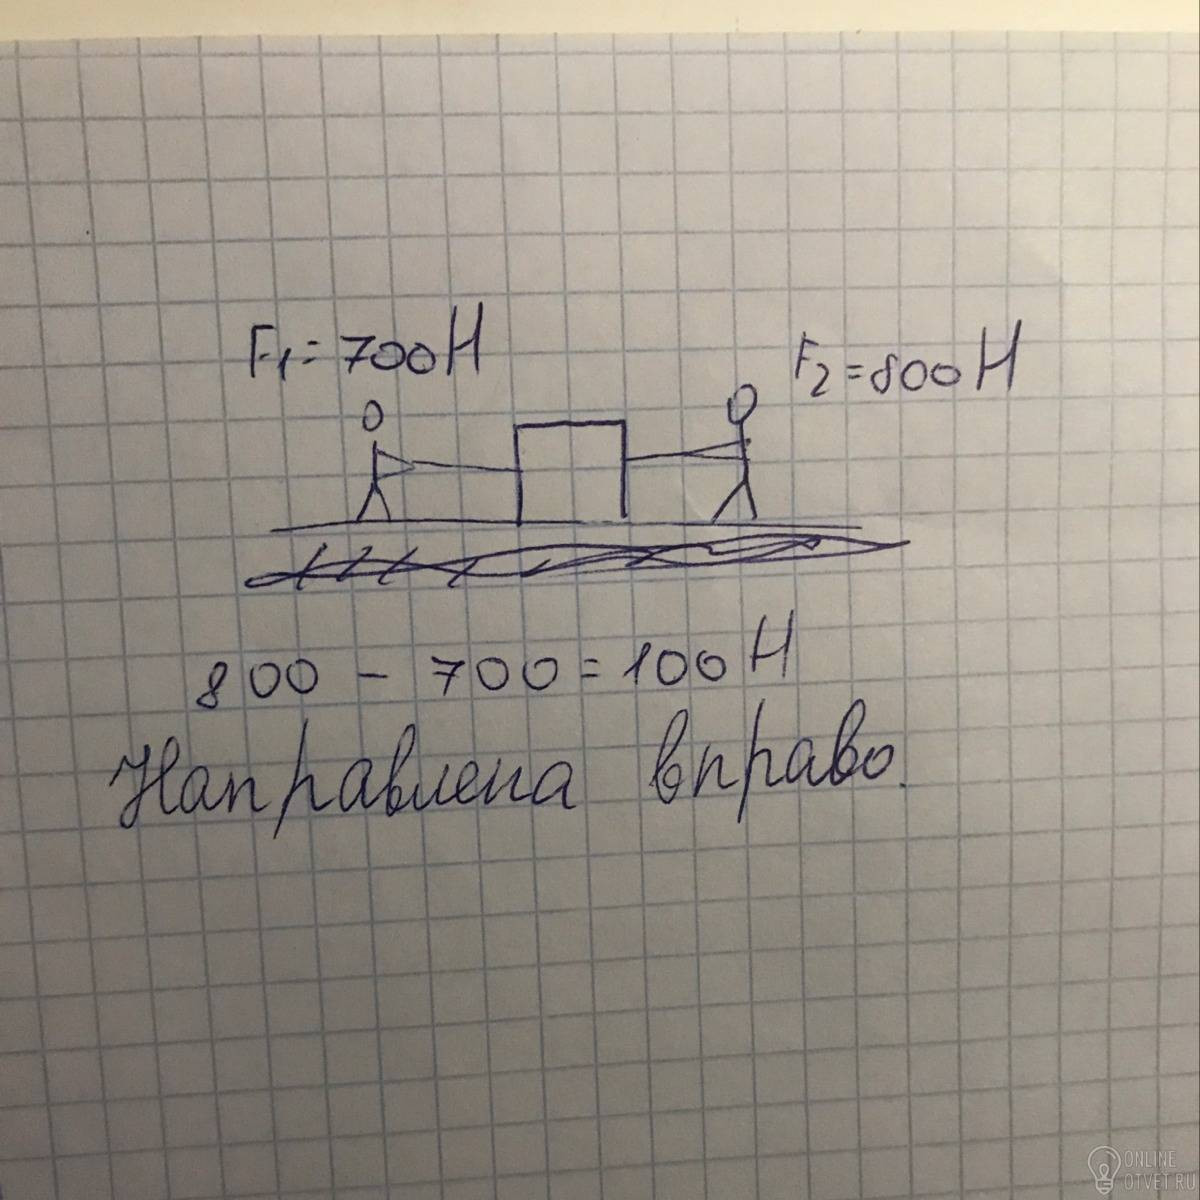 F₁=700Н
F₂=800Н
800 - 700=100Н
Направлена вправо.
ONLINE
OTVET.RU